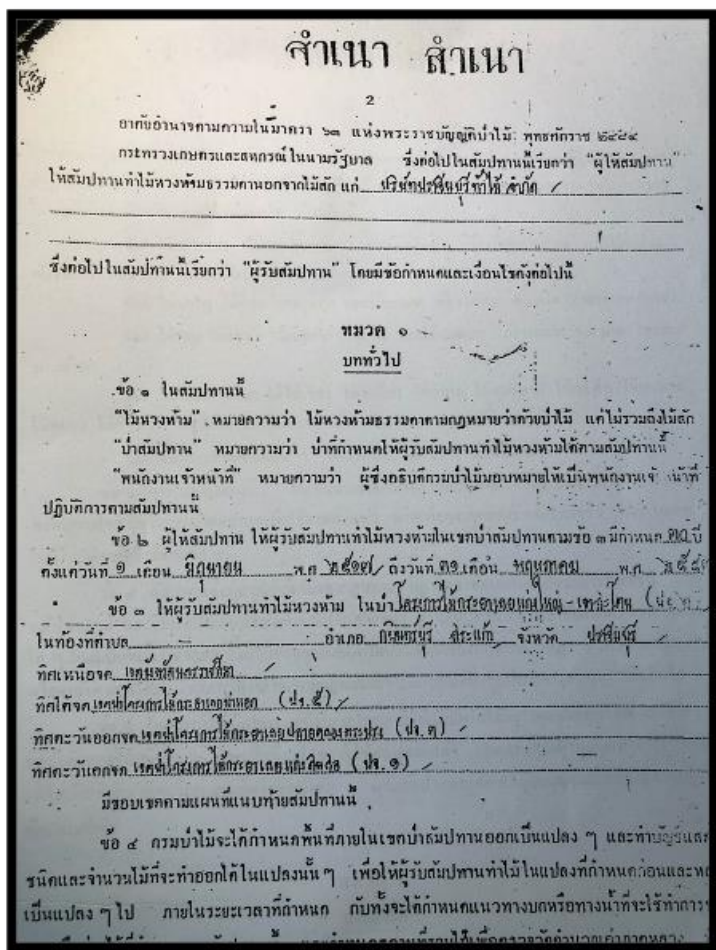 สำเนา สำเนา
2
อาศัยอำนาจตามความในมาตรา ๖๓ แห่งพระราชบัญญัติป่าไม้ พุทธศักราช ๒๔๘๔
กระทรวงเกษตรและสหกรณ์ในนามรัฐบาล ซึ่งต่อไปในสัมปทานนี้เรียกว่า "ผู้ให้สัมปทาน"
ให้สัมปทานทำไม้หวงห้ามธรรมดานอกจากไม้สัก แก่ บริษัทปราจีนบุรีทำไม้ จำกัด
ซึ่งต่อไปในสัมปทานนี้เรียกว่า "ผู้รับสัมปทาน" โดยมีข้อกำหนดและเงื่อนไขดังต่อไปนี้
หมวด ๑
บททั่วไป
ข้อ ๑ ในสัมปทานนี้
"ไม้หวงห้าม" หมายความว่า ไม้หวงห้ามธรรมดาตามกฎหมายว่าด้วยป่าไม้ แต่ไม่รวมถึงไม้สัก
"ป่าสัมปทาน" หมายความว่า ป่าที่กำหนดให้ผู้รับสัมปทานทำไม้หวงห้ามได้ตามสัมปทานนี้
"พนักงานเจ้าหน้าที่" หมายความว่า ผู้ซึ่งอธิบดีกรมป่าไม้มอบหมายให้เป็นพนักงานเจ้าหน้าที่
ปฏิบัติการตามสัมปทานนี้
ข้อ ๒ ผู้ให้สัมปทาน ให้ผู้รับสัมปทานทำไม้หวงห้ามในเขตป่าสัมปทานตามข้อ ๓ มีกำหนด ๓๐ ปี
ตั้งแต่วันที่ ๑ เดือน มิถุนายน พ.ศ. ๒๕๑๗ ถึงวันที่ ๓๑ เดือน พฤษภาคม พ.ศ.
ข้อ ๓ ให้ผู้รับสัมปทานทำไม้หวงห้าม ในป่า โครงการไม้กระยาเลย
ในท้องที่ตำบล - อำเภอ กบินทร์บุรี สระแก้ว จังหวัด ปราจีนบุรี
ทิศเหนือจด เขตจังหวัดนครราชสีมา
ทิศใต้จด เขตป่าโครงการไม้กระยาเลย (ปจ.๕)
ทิศตะวันออกจด เขตป่าโครงการไม้กระยาเลย (ปจ.๓)
ทิศตะวันตกจด เขตป่าโครงการไม้กระยาเลย (ปจ.๑)
มีขอบเขตตามแผนที่แนบท้ายสัมปทานนี้
ข้อ ๔ กรมป่าไม้จะได้กำหนดพื้นที่ภายในเขตป่าสัมปทานออกเป็นแปลง ๆ และทำบัญชีแสดง
ชนิดและจำนวนไม้ที่จะทำออกได้ในแปลงนั้น ๆ เพื่อให้ผู้รับสัมปทานทำไม้ในแปลงที่กำหนดก่อนและหลัง
เป็นแปลง ๆ ไป ภายในระยะเวลาที่กำหนด กับทั้งจะได้กำหนดแนวทางบกหรือทางน้ำที่จะใช้ทำการ